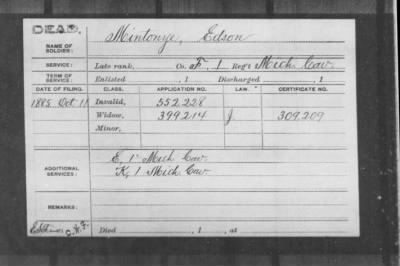 DEAD.
NAME OF SOLDIER: Mintonye, Edson
SERVICE: Late rank, Co. F, 1 Reg't Mich Cav.
TERM OF SERVICE: Enlisted , 1 Discharged , 1
DATE OF FILING. CLASS. APPLICATION NO. LAW. CERTIFICATE NO.
1885 Oct 11 Invalid, 552.228
Widow, 399.214 J 309.209
Minor,
ADDITIONAL SERVICES: E, 1" Mich Cav.
K, 1 Mich Cav.
REMARKS:
Died , 1 , at